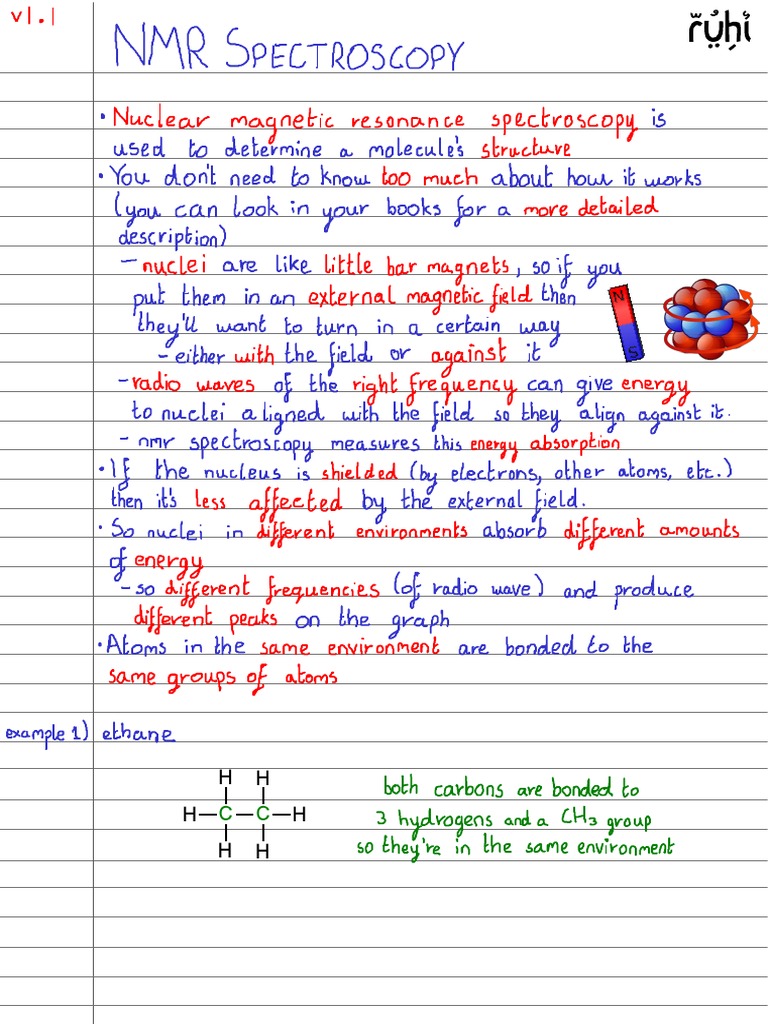 v1.1
NMR SPECTROSCOPY
ruhi
• Nuclear magnetic resonance spectroscopy is
used to determine a molecule's structure
• You don't need to know too much about how it works
(you can look in your books for a more detailed
description)
- nuclei are like little bar magnets, so if you
put them in an external magnetic field then
they'll want to turn in a certain way
- either with the field or against it
N
S
- radio waves of the right frequency can give energy
to nuclei aligned with the field so they align against it.
- nmr spectroscopy measures this energy absorption
• If the nucleus is shielded (by electrons, other atoms, etc.)
then it's less affected by the external field.
• So nuclei in different environments absorb different amounts
of energy
- so different frequencies (of radio wave) and produce
different peaks on the graph
• Atoms in the same environment are bonded to the
same groups of atoms
example 1) ethane
H H
H-C-C-H
H H
both carbons are bonded to
3 hydrogens and a CH3 group
so they're in the same environment